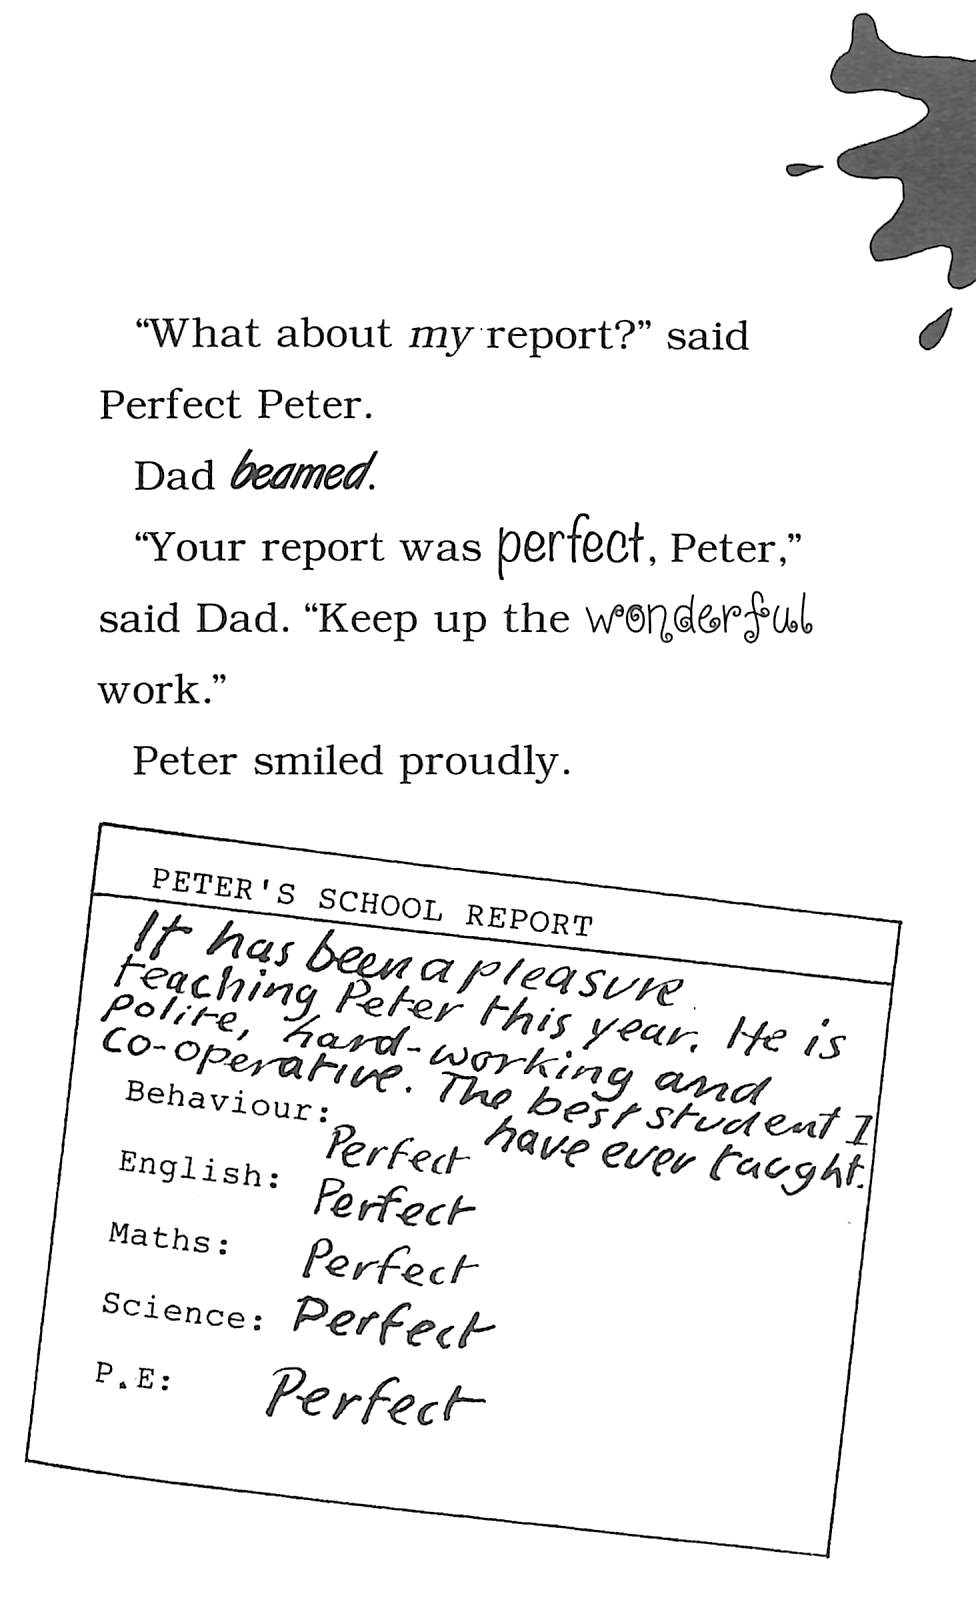 “What about my report?” said
Perfect Peter.
Dad beamed.
“Your report was perfect, Peter,”
said Dad. “Keep up the wonderful
work.”
Peter smiled proudly.
PETER'S SCHOOL REPORT
It has been a pleasure
teaching Peter this year. He is
polite, hard-working and
co-operative. The best student I
have ever taught.
Behaviour: Perfect
English: Perfect
Maths: Perfect
Science: Perfect
P.E: Perfect